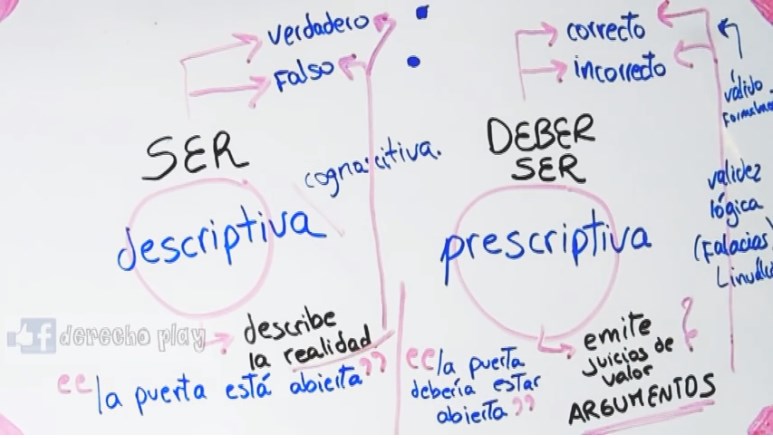 verdadero
Falso
SER
cognoscitiva.
descriptiva
describe
la realidad
"la puerta está abierta"
correcto
incorrecto
DEBER
SER
prescriptiva
emite
juicios de
valor
ARGUMENTOS
?
"la puerta
debería estar
abierta"
válido
validez
lógica
(Falacias)
derecho play